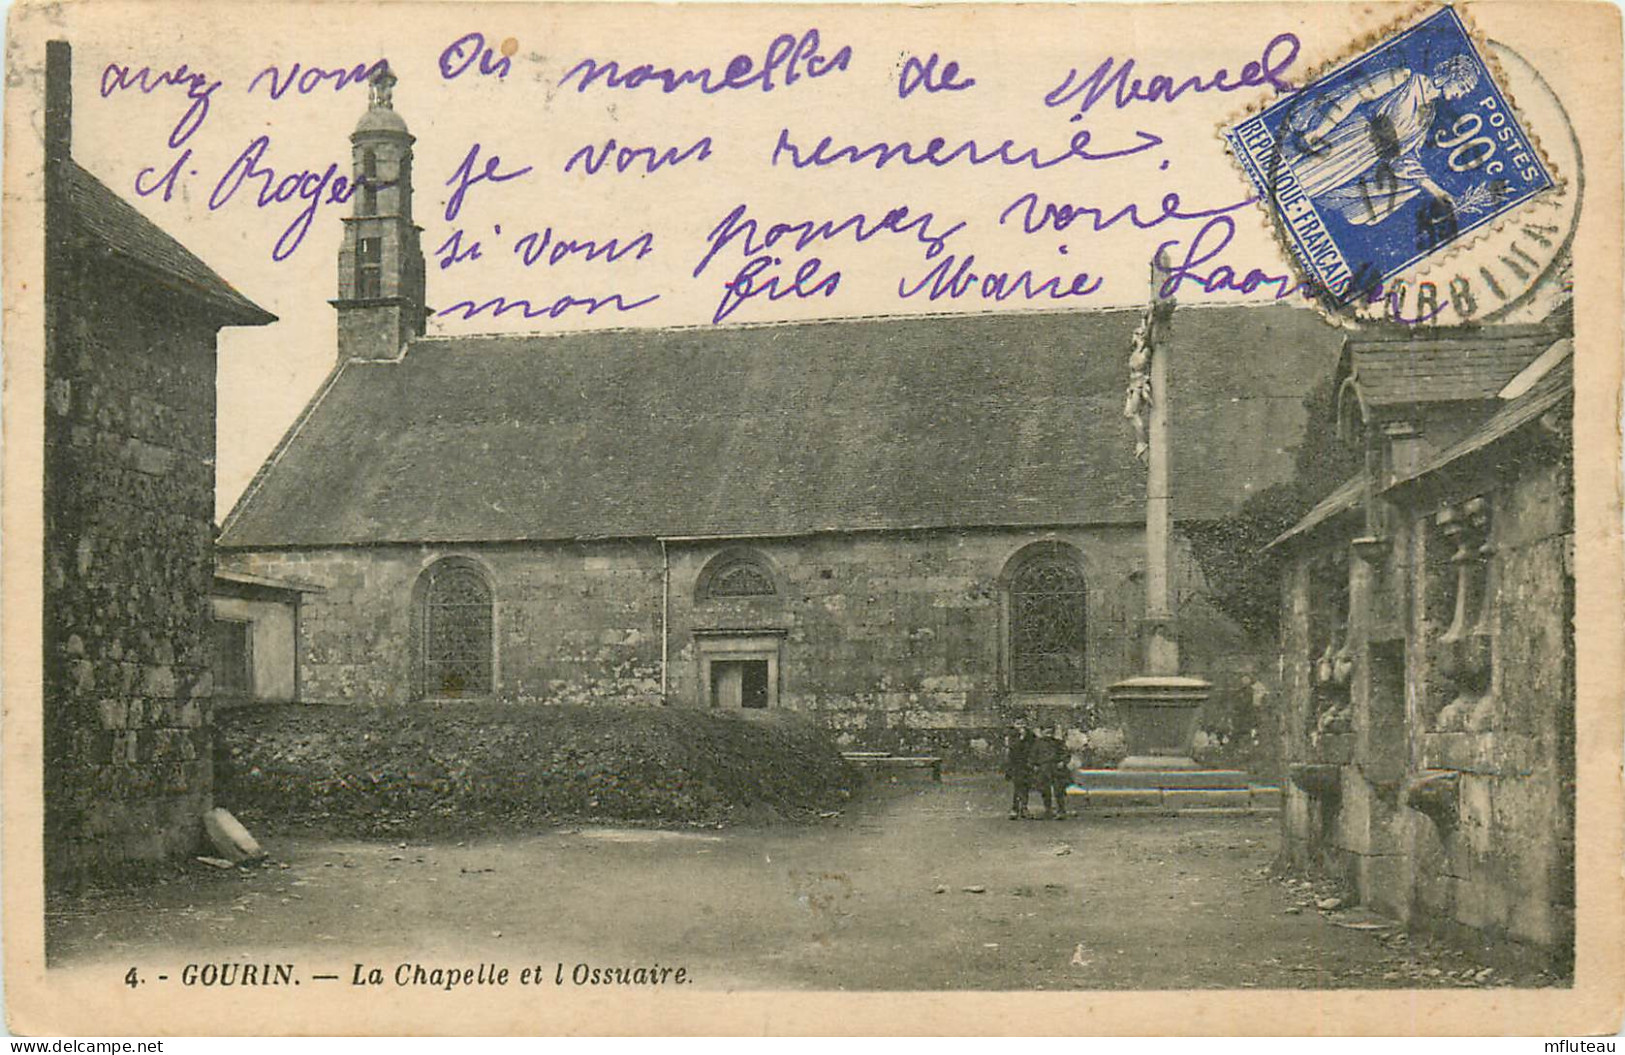 avez vous des nouvelles de Marcel
et Roger je vous remercie.
si vous pouvez voire
mon fils Marie
POSTES
90c
REPUBLIQUE·FRANÇAISE
12
39
MORBIHAN
4. - GOURIN. — La Chapelle et l Ossuaire.
mfluteau